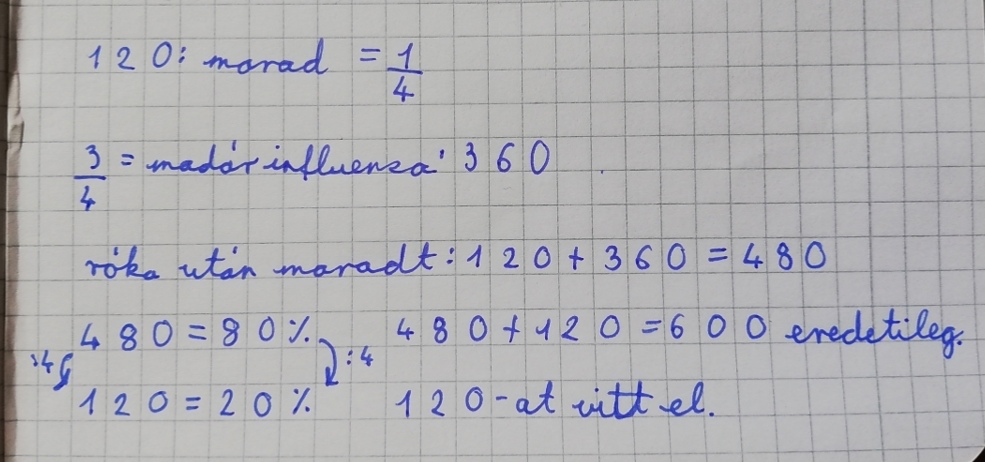 120: marad = 1/4
3/4 = madárinfluenza: 360
róka után maradt: 120 + 360 = 480
480 = 80%. 480 + 120 = 600 eredetileg.
:4 :4
120 = 20% 120-at vitt el.